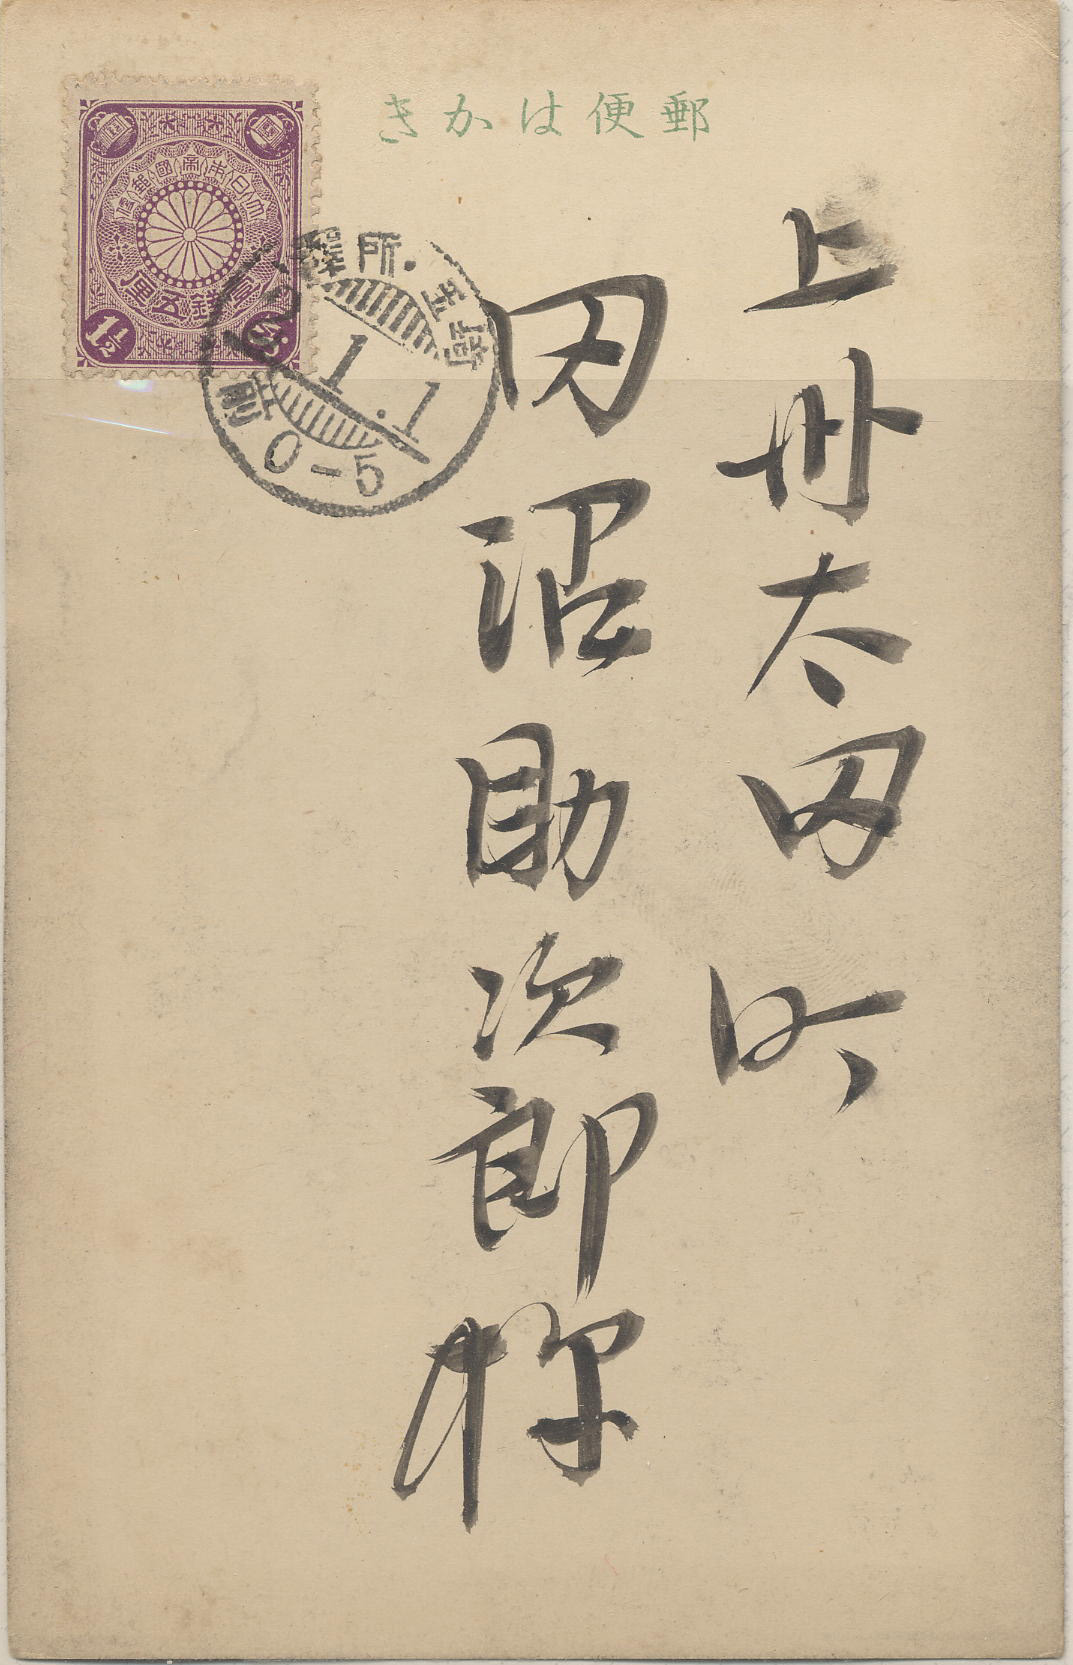 郵便はかき
大日本帝國郵便
壹錢五厘
1½
所.玉﨑
1.1
前 0-5
上州太田町
田沼助次郎様